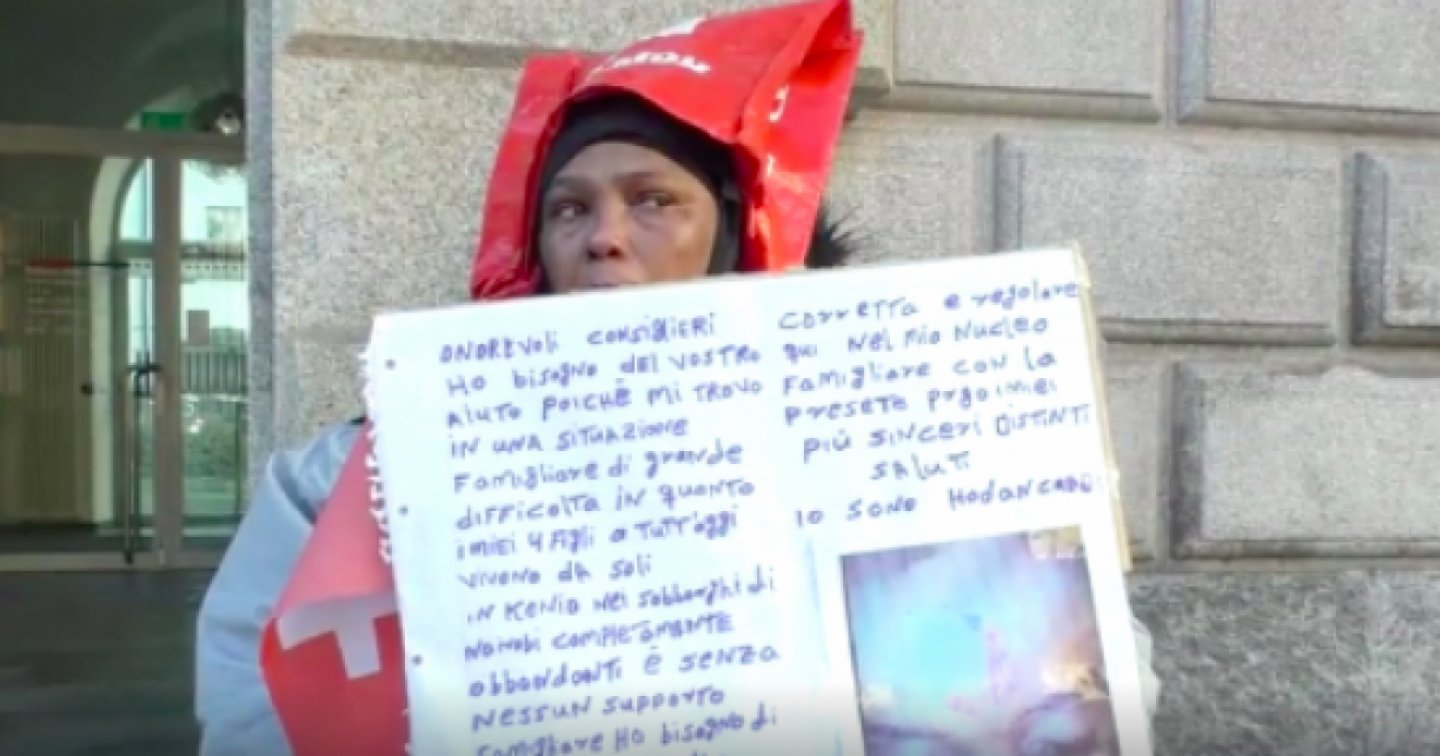 ONOREVOLI CONSIGLIERI
HO bisogno DEL VOSTRO
AIUTO POICHÈ MI TROVO
IN UNA SITUAZIONE
Famigliare di grande
DIFFICOLTA in quanto
i miei 4 Figli a TUTT'oggi
vivono da soli
in Kenia nei sobborghi di
Nairobi COMPLETAMENTE
abbandonti È senza
NESSUN SUPPORTO
Famigliare HO bisogno di
corretta e regolare
qui nel mio Nucleo
Famigliare con la
presete pgo i miei
PIÚ SINCERI DISTINTI
SALUTI
IO SONO